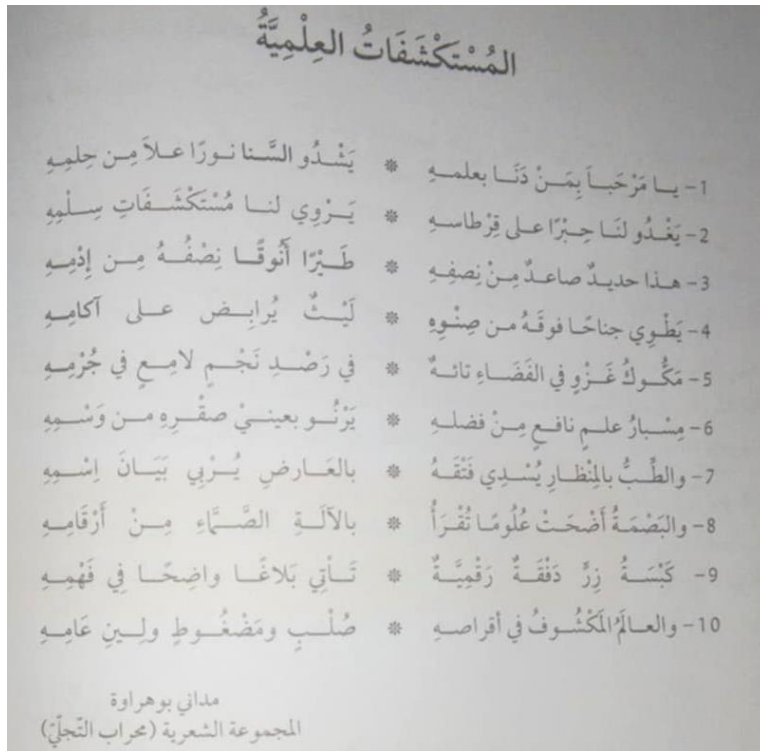 المُسْتَكْشَفَاتُ العِلْمِيَّةُ
1- يـا مَرْحَباً بِمَنْ دَنَا بعلمـهِ * يَشْدُو السَّنا نـورًا عـلاَ مِـن حِلمِهِ
2- يَغْدُو لنَا حِبْرًا على قِرْطاسهِ * يَرْوِي لنا مُسْتَكْشَفَاتِ سِلْمِهِ
3- هـذا حديـدٌ صاعـدٌ مِـنْ نِصفِهِ * طَيْرًا أَنُوقًا نِصْفُهُ مِن إِدْمِهِ
4- يَطْوِي جناحًا فوقَهُ من صِنْوِهِ * لَيْثٌ يُرابِض على آكامِهِ
5- مَكُّوكُ غَزْوٍ في الفَضَاءِ تائهٌ * في رَصْدِ نَجْمٍ لامعٍ في جُرْمِهِ
6- مِسْبارُ علمٍ نافعٍ مِنْ فضلهِ * يَرْنُو بعينيْ صقْرِهِ من وَسْمِهِ
7- والطِّبُّ بالمِنْظارِ يُسْدِي فَتْقَهُ * بالعَارضِ يُرْبِي بَيَانَ اِسْمِهِ
8- والبَصْمَةُ أَضْحَتْ عُلُومًا تُقْرَأُ * بالآلَةِ الصَّمَّاءِ مِنْ أَرْقَامِهِ
9- كَبْسَةُ زِرٍّ دَفْقَةٌ رَقْمِيَّةٌ * تَأْتِي بَلاغًا واضِحًا فِي فَهْمِهِ
10- والعـالَمُ المَكْشُوفُ في أقراصهِ * صُلْبٍ ومَضْغُوطٍ ولِينِ عَامِهِ
مداني بوهراوة
المجموعة الشعرية (محراب التّجلّيّ)